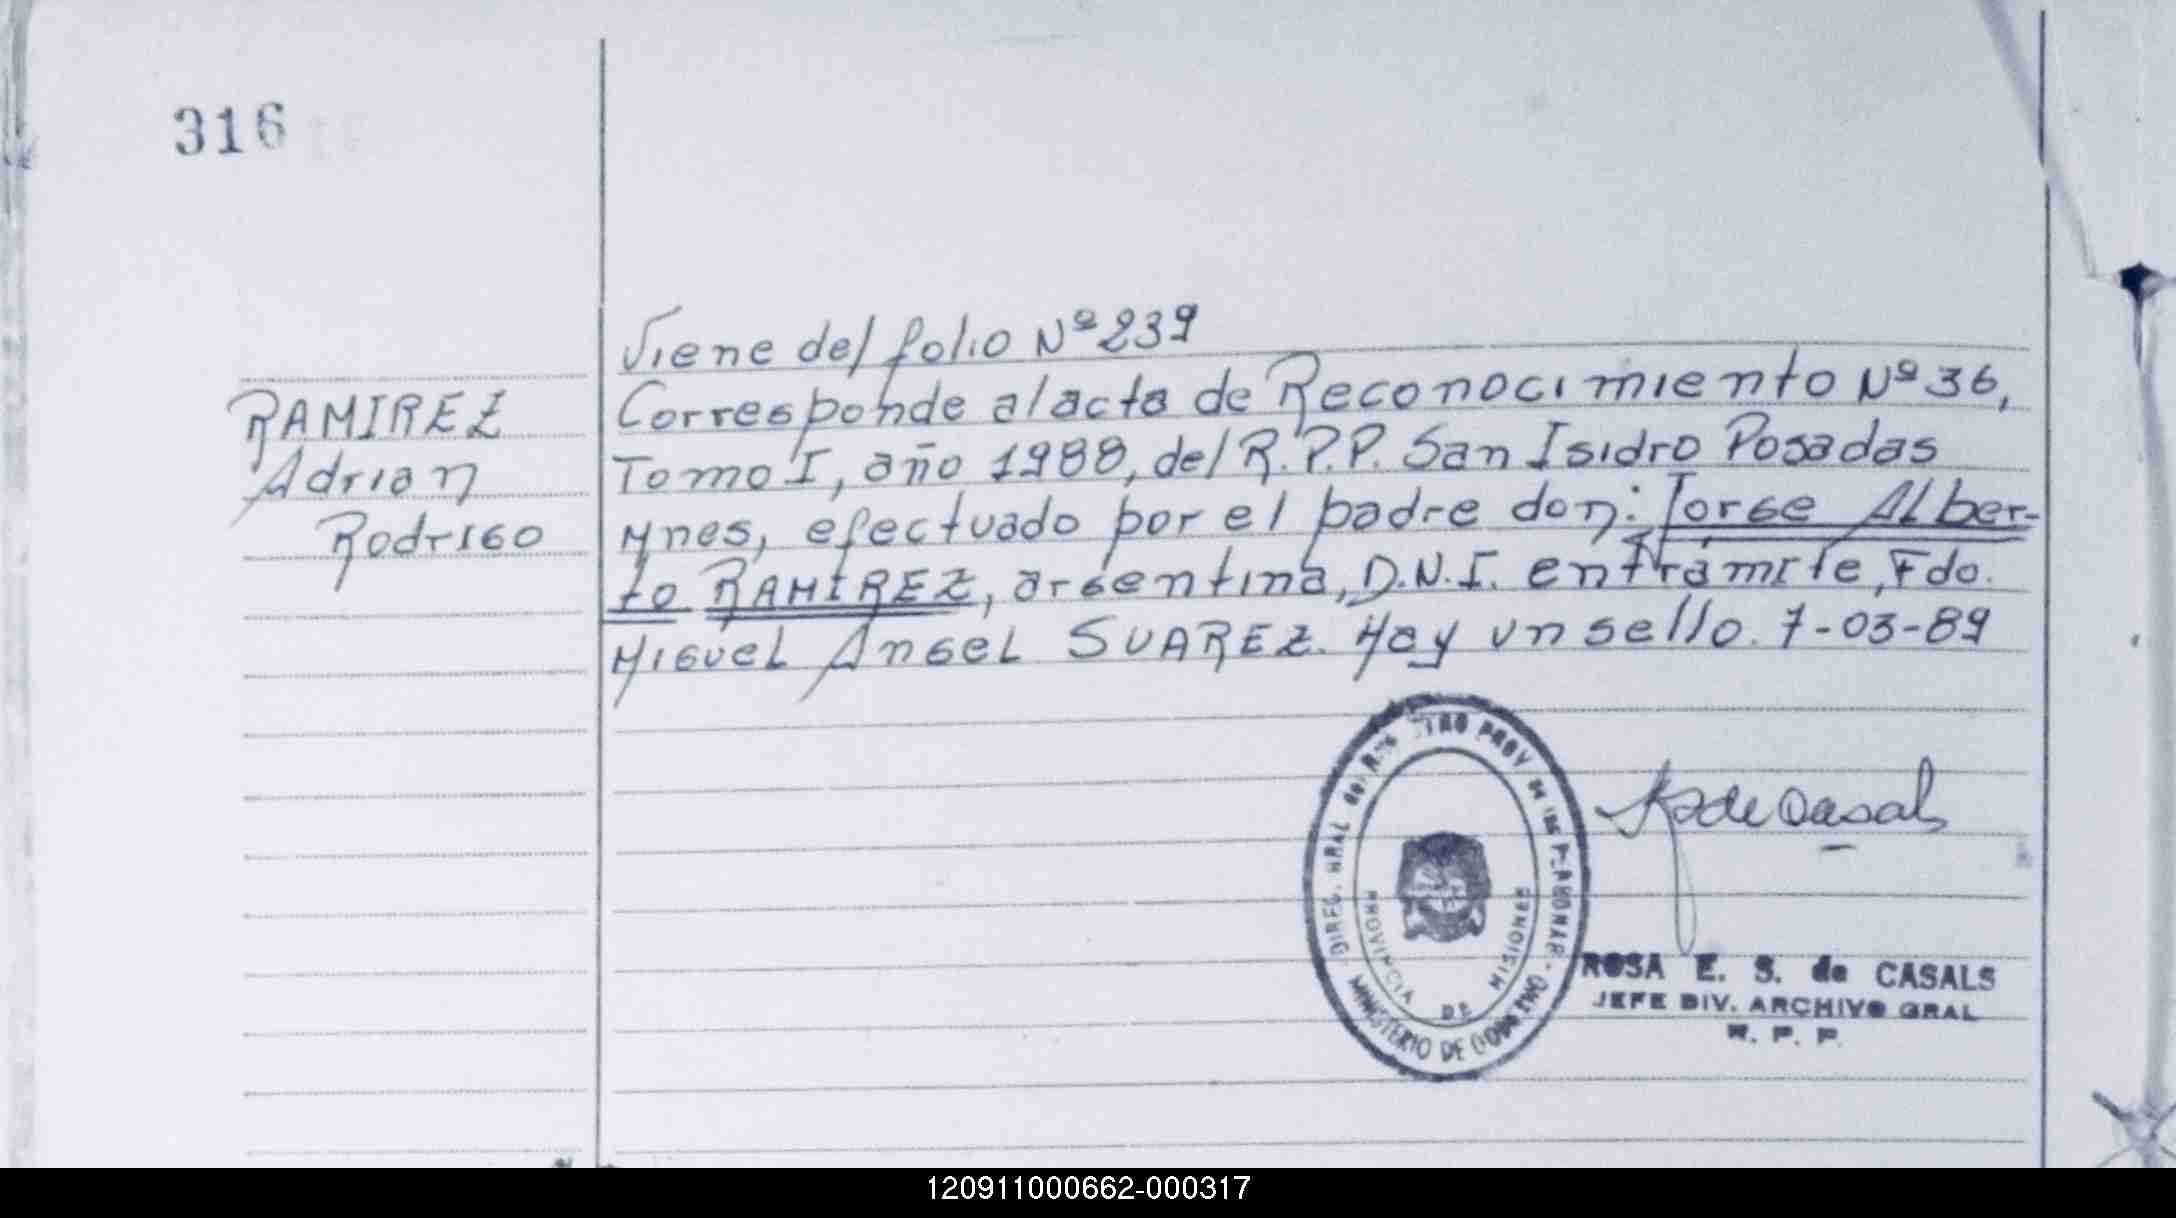 316
Viene del folio Nº 239
RAMIREZ
Adrian
Rodrigo
Corresponde al acta de Reconocimiento Nº 36,
Tomo I, año 1988, del R.P.P. San Isidro Posadas
Mnes, efectuado por el padre don: Jorge Alber-
to RAMIREZ, argentina, D.N.I. en trámite, Fdo.
Miguel Angel SUAREZ. Hay un sello. 7-03-89
PROV DE LAS PERSONAS
MINISTERIO DE GOBIERNO
PROVINCIA DE MISIONES
ROSA E. S. de CASALS
JEFE DIV. ARCHIVO GRAL
R. P. P.
120911000662-000317